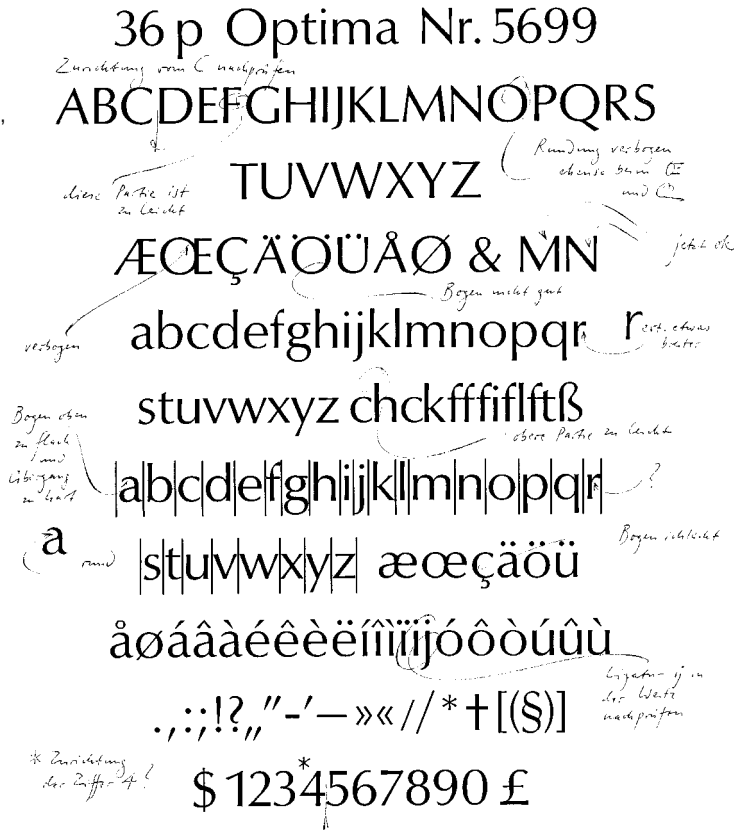 36 p Optima Nr. 5699
Zurichtung vom C nachprüfen
ABCDEFGHIJKLMNOPQRS
diese Partie ist
zu leicht
TUVWXYZ
Rundung verbogen
ebenso beim Œ
und Q
ÆŒÇÄÖÜÅØ & MN
jetzt ok
Bogen nicht gut
verbogen
abcdefghijklmnopqr
r
etwas
breiter
stuvwxyz chckfffiflftß
Bogen oben
zu flach
und
Übergang
zu hart
obere Partie zu leicht
abcdefghijklmnopqr
?
a
rund
stuvwxyz æœçäöü
Bogen schlecht
åøáâàéêèëíîìïijóôòúûù
Ligatur ij in
der Weite
nachprüfen
.,:;!?„“-’—»«//*†[(§)]
* Zurichtung
der Ziffer 4?
*
$ 1234567890 £